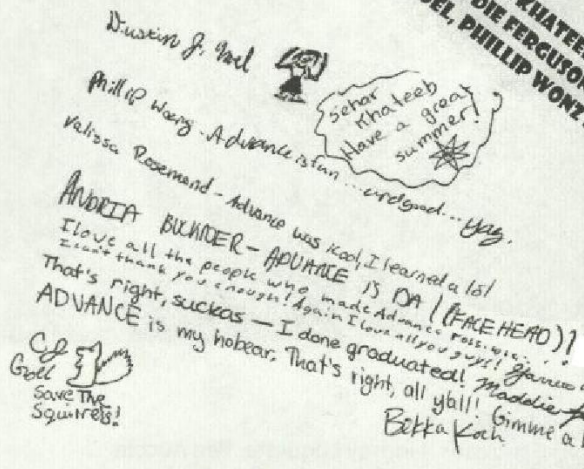 KHATEEB
DIE FERGUSON
EL, PHILLIP WONZ
Dustin J.
Sehar
Khateeb
Have a great
summer!
Phillip Wong - Advance is fun ... and good... yay.
Valissa Rosemond - Advance was kool, I learned a lot
ANDRIA BUCKNER - ADVANCE IS DA ! (FACE HEAD)!
I love all the people who made Advance Possible
I can't thank you enough! Again I love all you guys!
That's right, suckas - I done graduated! Maddie
ADVANCE is my hobear. That's right, all yall! Gimme a
Bekka Koch
CJ
Goll
Save The
Squirrels!